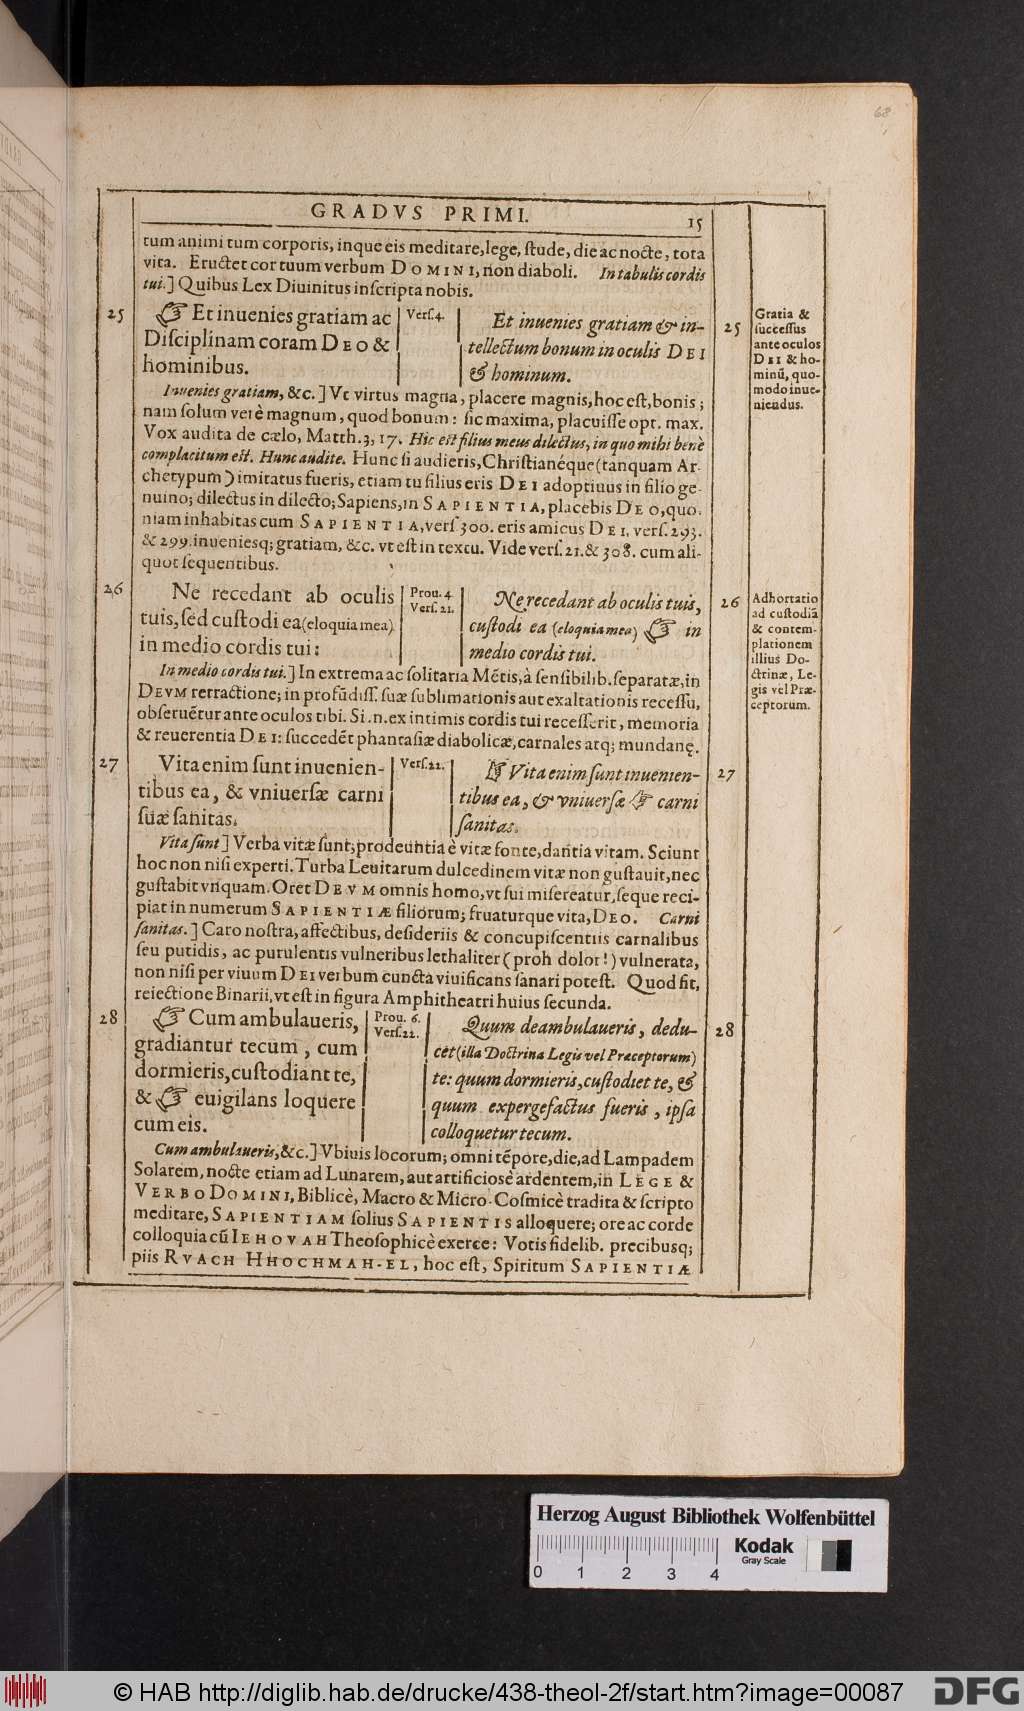 68
GRADVS PRIMI.
15
tum animi tum corporis, inque eis meditare, lege, ſtude, die ac nocte, tota
vita. Eructet cor tuum verbum DOMINI, non diaboli. In tabulis cordis
tui.] Quibus Lex Diuinitus inſcripta nobis.
25
☞ Et inuenies gratiam ac
Diſciplinam coram DEO &
hominibus.
Verſ. 4.
Et inuenies gratiam & in-
tellectum bonum in oculis DEI
& hominum.
25
Gratia &
ſucceſſus
ante oculos
DEI & ho-
minū, quo-
modo inue-
niendus.
Inuenies gratiam, &c.] Vt virtus magna, placere magnis, hoc eſt, bonis;
nam ſolum verè magnum, quod bonum: ſic maxima, placuiſſe opt. max.
Vox audita de cælo, Matth. 3, 17. Hic eſt filius meus dilectus, in quo mihi benè
complacitum eſt. Hunc audite. Hunc ſi audieris, Chriſtianéque (tanquam Ar-
chetypum) imitatus fueris, etiam tu filius eris DEI adoptiuus in filio ge-
nuino; dilectus in dilecto; Sapiens, in SAPIENTIA, placebis DEO, quo-
niam inhabitas cum SAPIENTIA, verſ 300. eris amicus DEI, verſ. 293.
& 299. inueniesq; gratiam, &c. vt eſt in textu. Vide verſ. 21. & 308. cum ali-
quot ſequentibus.
26
Ne recedant ab oculis
tuis, ſed cuſtodi ea (eloquia mea)
in medio cordis tui:
Prou. 4
Verſ. 21.
Ne recedant ab oculis tuis,
cuſtodi ea (eloquia mea) ☞ in
medio cordis tui.
26
Adhortatio
ad cuſtodiā
& contem-
plationem
illius Do-
ctrinæ, Le-
gis vel Præ-
ceptorum.
In medio cordis tui.] In extrema ac ſolitaria Mētis, à ſenſibilib. ſeparatæ, in
DEVM retractione; in profūdiſſ. ſuæ ſublimationis aut exaltationis receſſu,
obſeruētur ante oculos tibi. Si. n. ex intimis cordis tui receſſerit, memoria
& reuerentia DEI: ſuccedēt phantaſiæ diabolicæ, carnales atq; mundanę.
27
Vita enim ſunt inuenien-
tibus ea, & vniuerſæ carni
ſuæ ſanitas.
Verſ. 22.
☞ Vita enim ſunt inuenien-
tibus ea, & vniuerſæ ☞ carni
ſanitas.
27
Vita ſunt] Verba vitæ ſunt; prodeuntia è vitæ fonte, dantia vitam. Sciunt
hoc non niſi experti. Turba Leuitarum dulcedinem vitæ non guſtauit, nec
guſtabit vnquam. Oret DEVM omnis homo, vt ſui miſereatur, ſeque reci-
piat in numerum SAPIENTIÆ filiorum; fruaturque vita, DEO. Carni
ſanitas.] Caro noſtra, affectibus, deſideriis & concupiſcentiis carnalibus
ſeu putidis, ac purulentis vulneribus lethaliter (proh dolor!) vulnerata,
non niſi per viuum DEI verbum cuncta viuificans ſanari poteſt. Quod fit,
reiectione Binarii, vt eſt in figura Amphitheatri huius ſecunda.
28
☞ Cum ambulaueris,
gradiantur tecum, cum
dormieris, cuſtodiant te,
& ☞ euigilans loquere
cum eis.
Prou. 6.
Verſ. 22.
Quum deambulaueris, dedu-
cet (illa Doctrina Legis vel Præceptorum)
te: quum dormieris, cuſtodiet te, &
quum expergefactus fueris, ipſa
colloquetur tecum.
28
Cum ambulaueris, &c.] Vbiuis locorum; omni tēpore, die, ad Lampadem
Solarem, nocte etiam ad Lunarem, aut artificiosè ardentem, in LEGE &
VERBO DOMINI, Biblicè, Macro & Micro-Coſmicè tradita & ſcripto
meditare, SAPIENTIAM ſolius SAPIENTIS alloquere; ore ac corde
colloquia cū IEHOVAH Theoſophicè exerce: Votis fidelib. precibusq;
piis RVACH HHOCHMAH-EL, hoc eſt, Spiritum SAPIENTIÆ
Herzog August Bibliothek Wolfenbüttel
0 1 2 3 4
Kodak
Gray Scale
© HAB http://diglib.hab.de/drucke/438-theol-2f/start.htm?image=00087
DFG